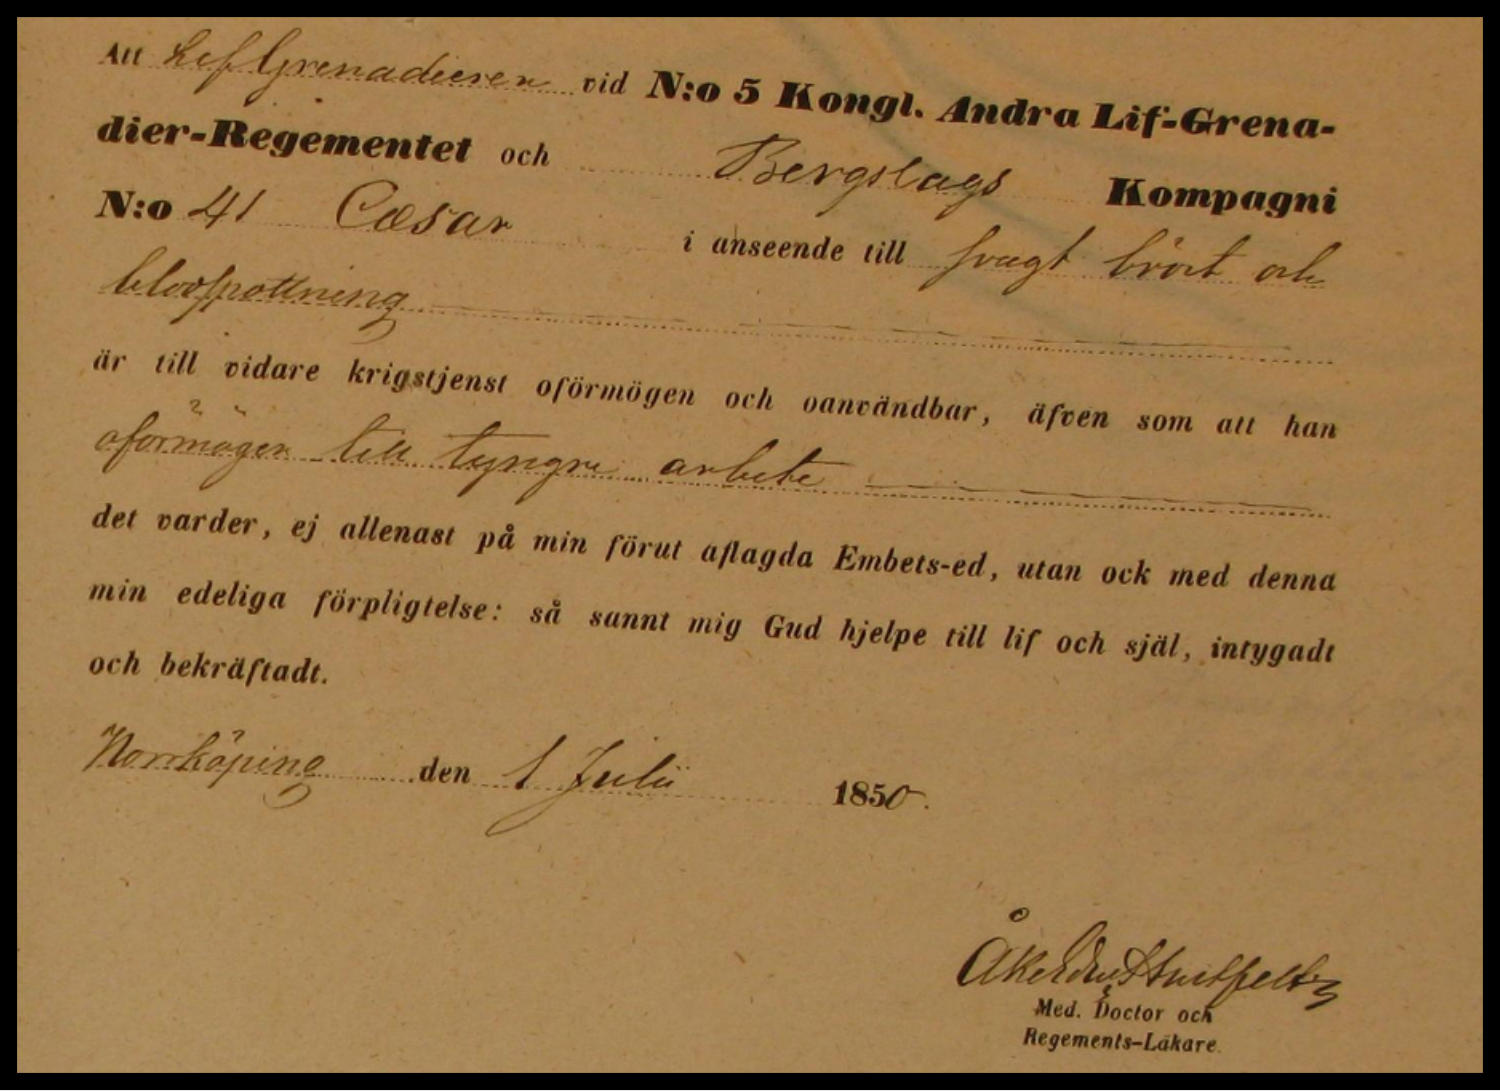 Att LifGrenadieren vid N:o 5 Kongl. Andra Lif-Grena-
dier-Regementet och Bergslags Kompagni
N:o 41 Cæsar i anseende till svagt bröst och
blodspottning
är till vidare krigstjenst oförmögen och oanvändbar, äfven som att han
oförmögen till tyngre arbete
det varder, ej allenast på min förut aflagda Embets-ed, utan ock med denna
min edeliga förpligtelse: så sannt mig Gud hjelpe till lif och själ, intygadt
och bekräftadt.
Norrköping den 1 Julii 1850.
Med. Doctor och
Regements-Läkare.